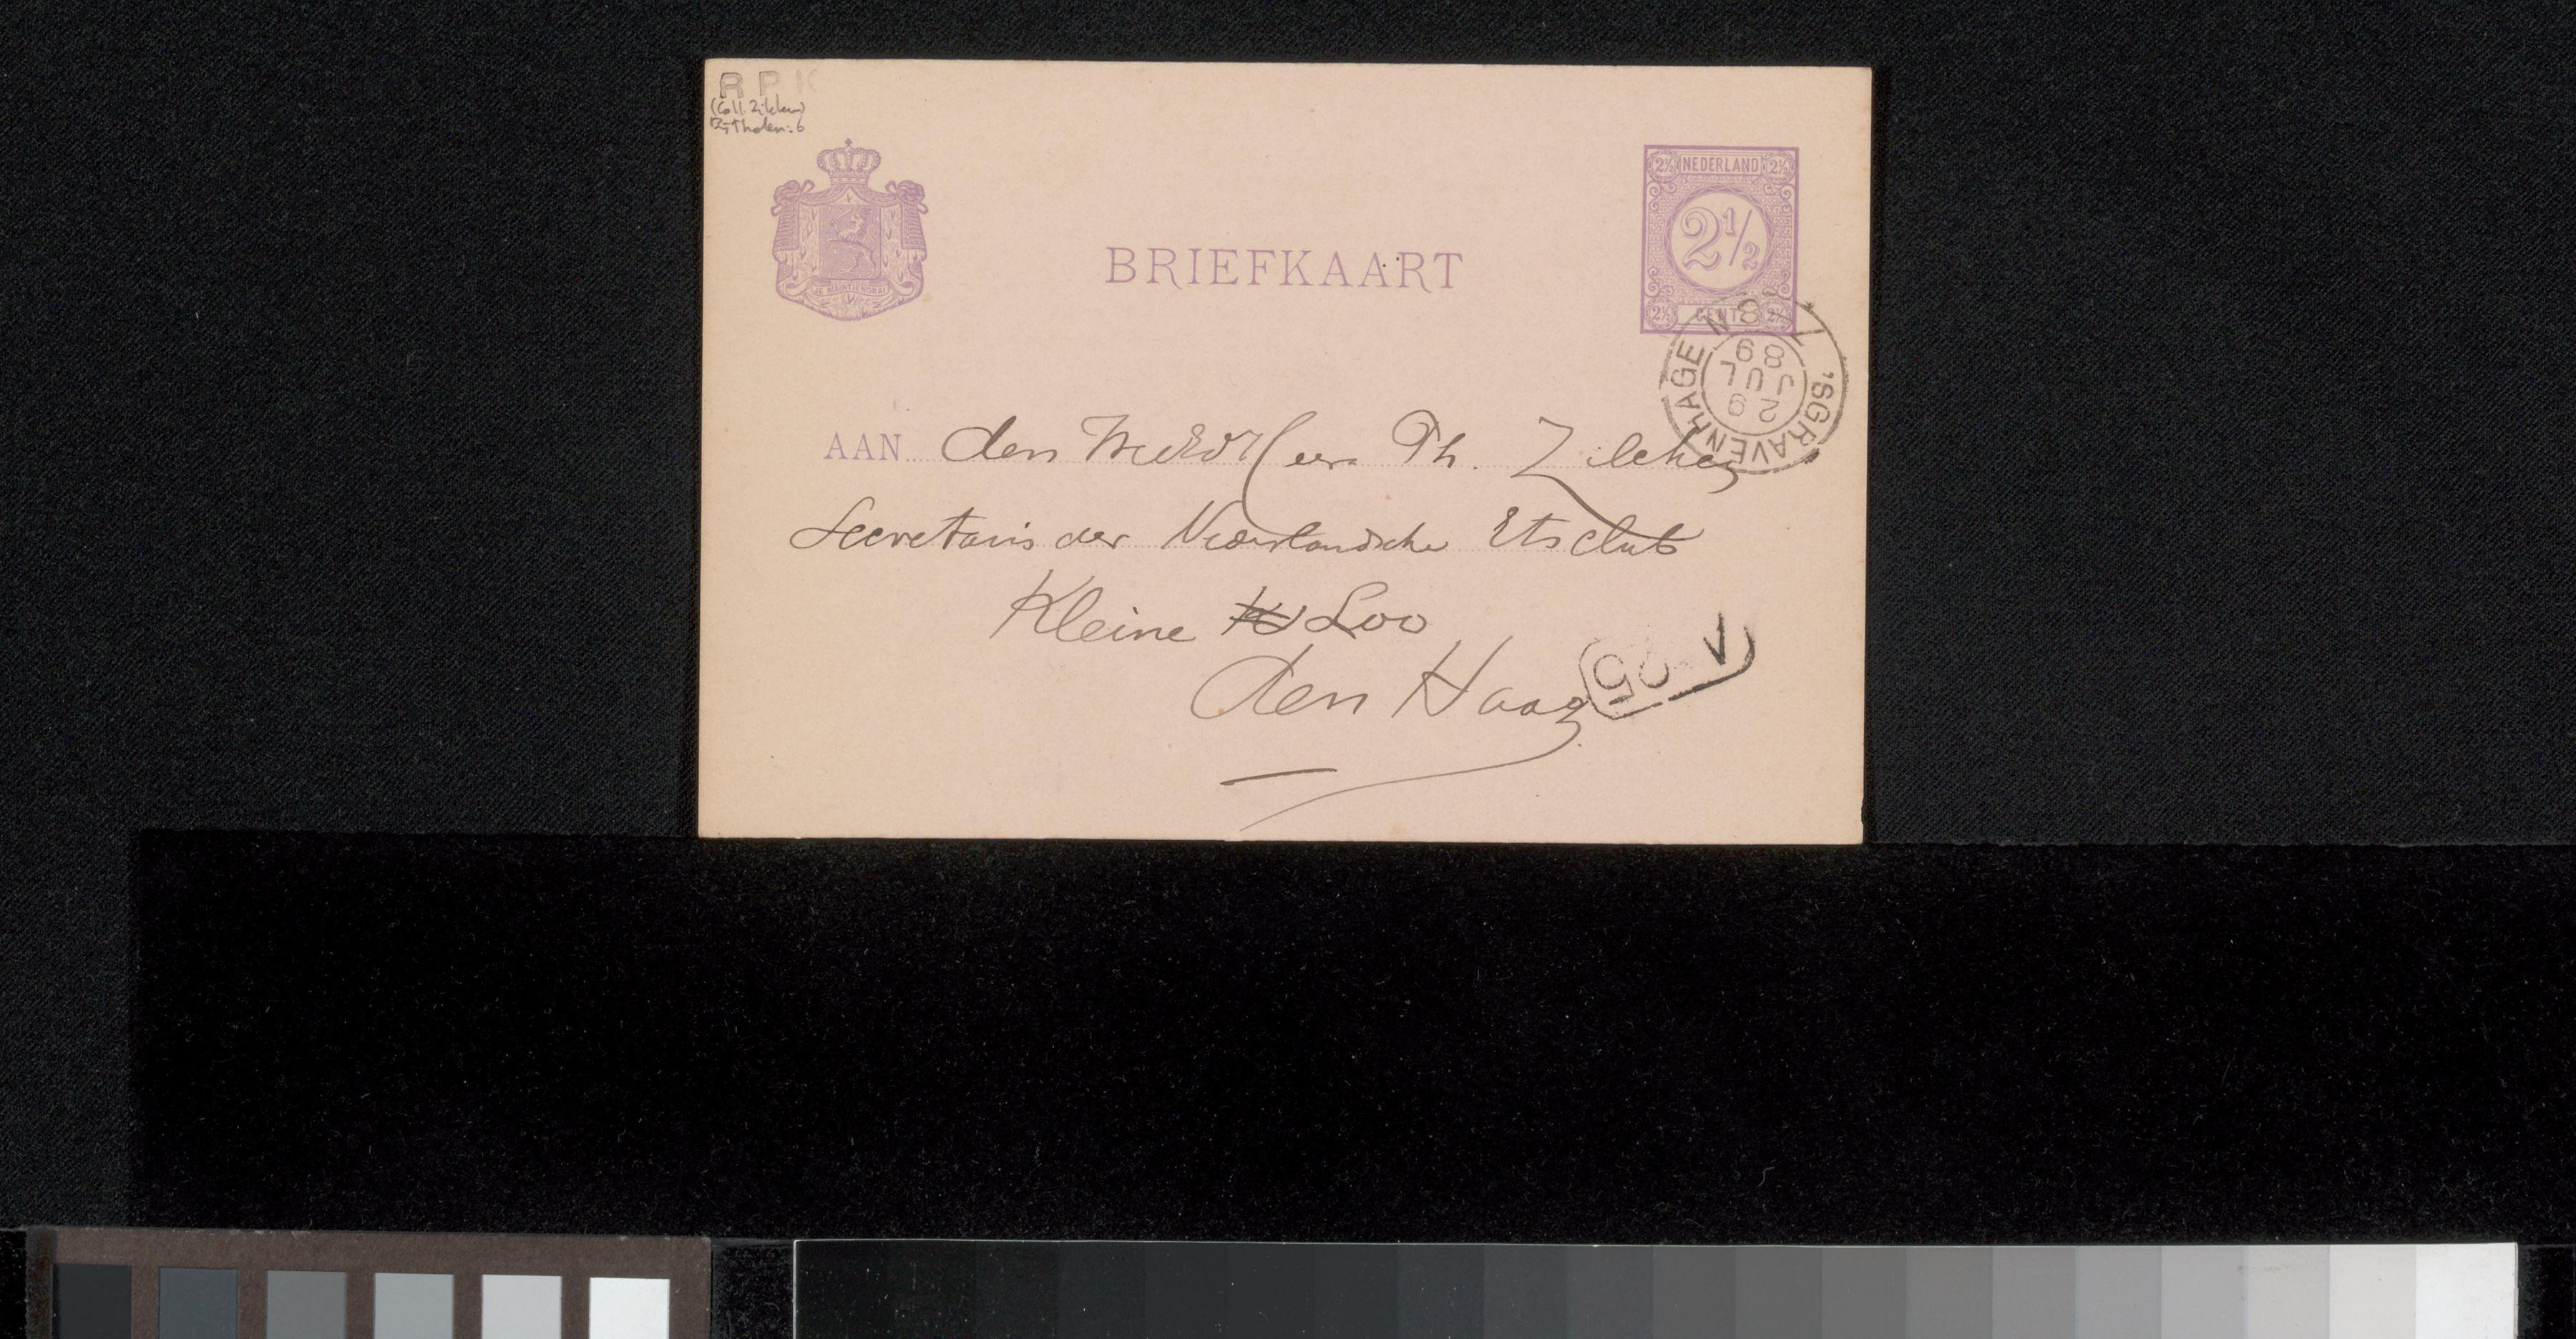 R P K
(Coll. Zilcken)
Tholen: 6
JE MAINTIENDRAI
BRIEFKAART
2½ NEDERLAND 2½
2½
2½ CENT 2½
'SGRAVENHAGE
29
JUL
89
8 N
AAN den WelEdHeer Ph. Zilcken
Secretaris der Nederlandsche Etsclub
Kleine Loo
den Haag